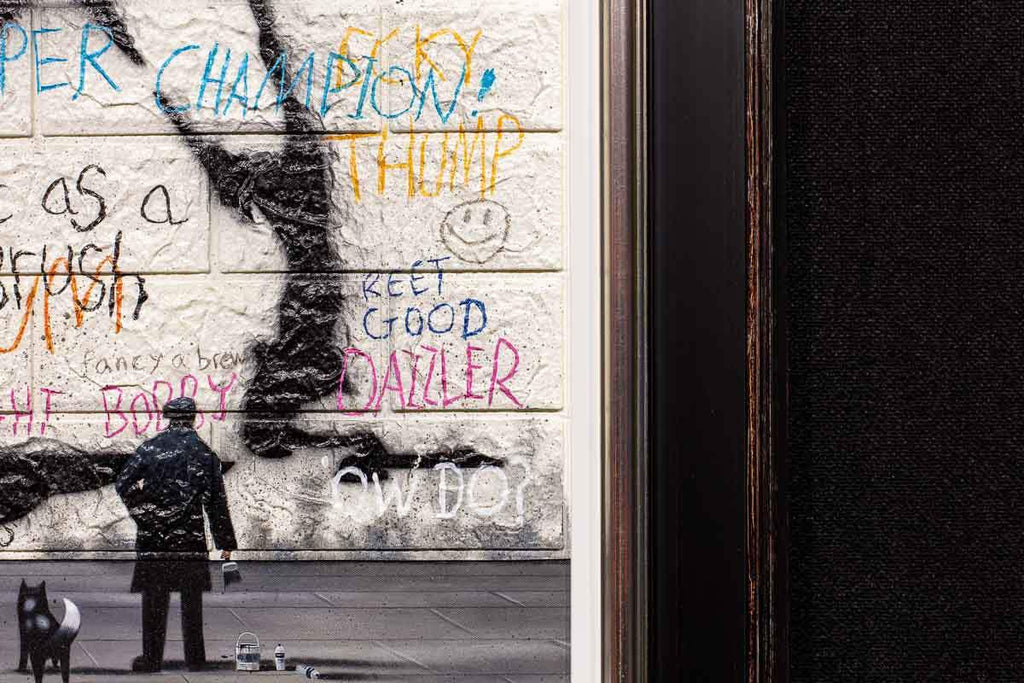 PER CHAMPION!
ECKY
THUMP
as a
brush
REET
GOOD
fancy a brew
DAZZLER
HT BOBBY
'OW DO?